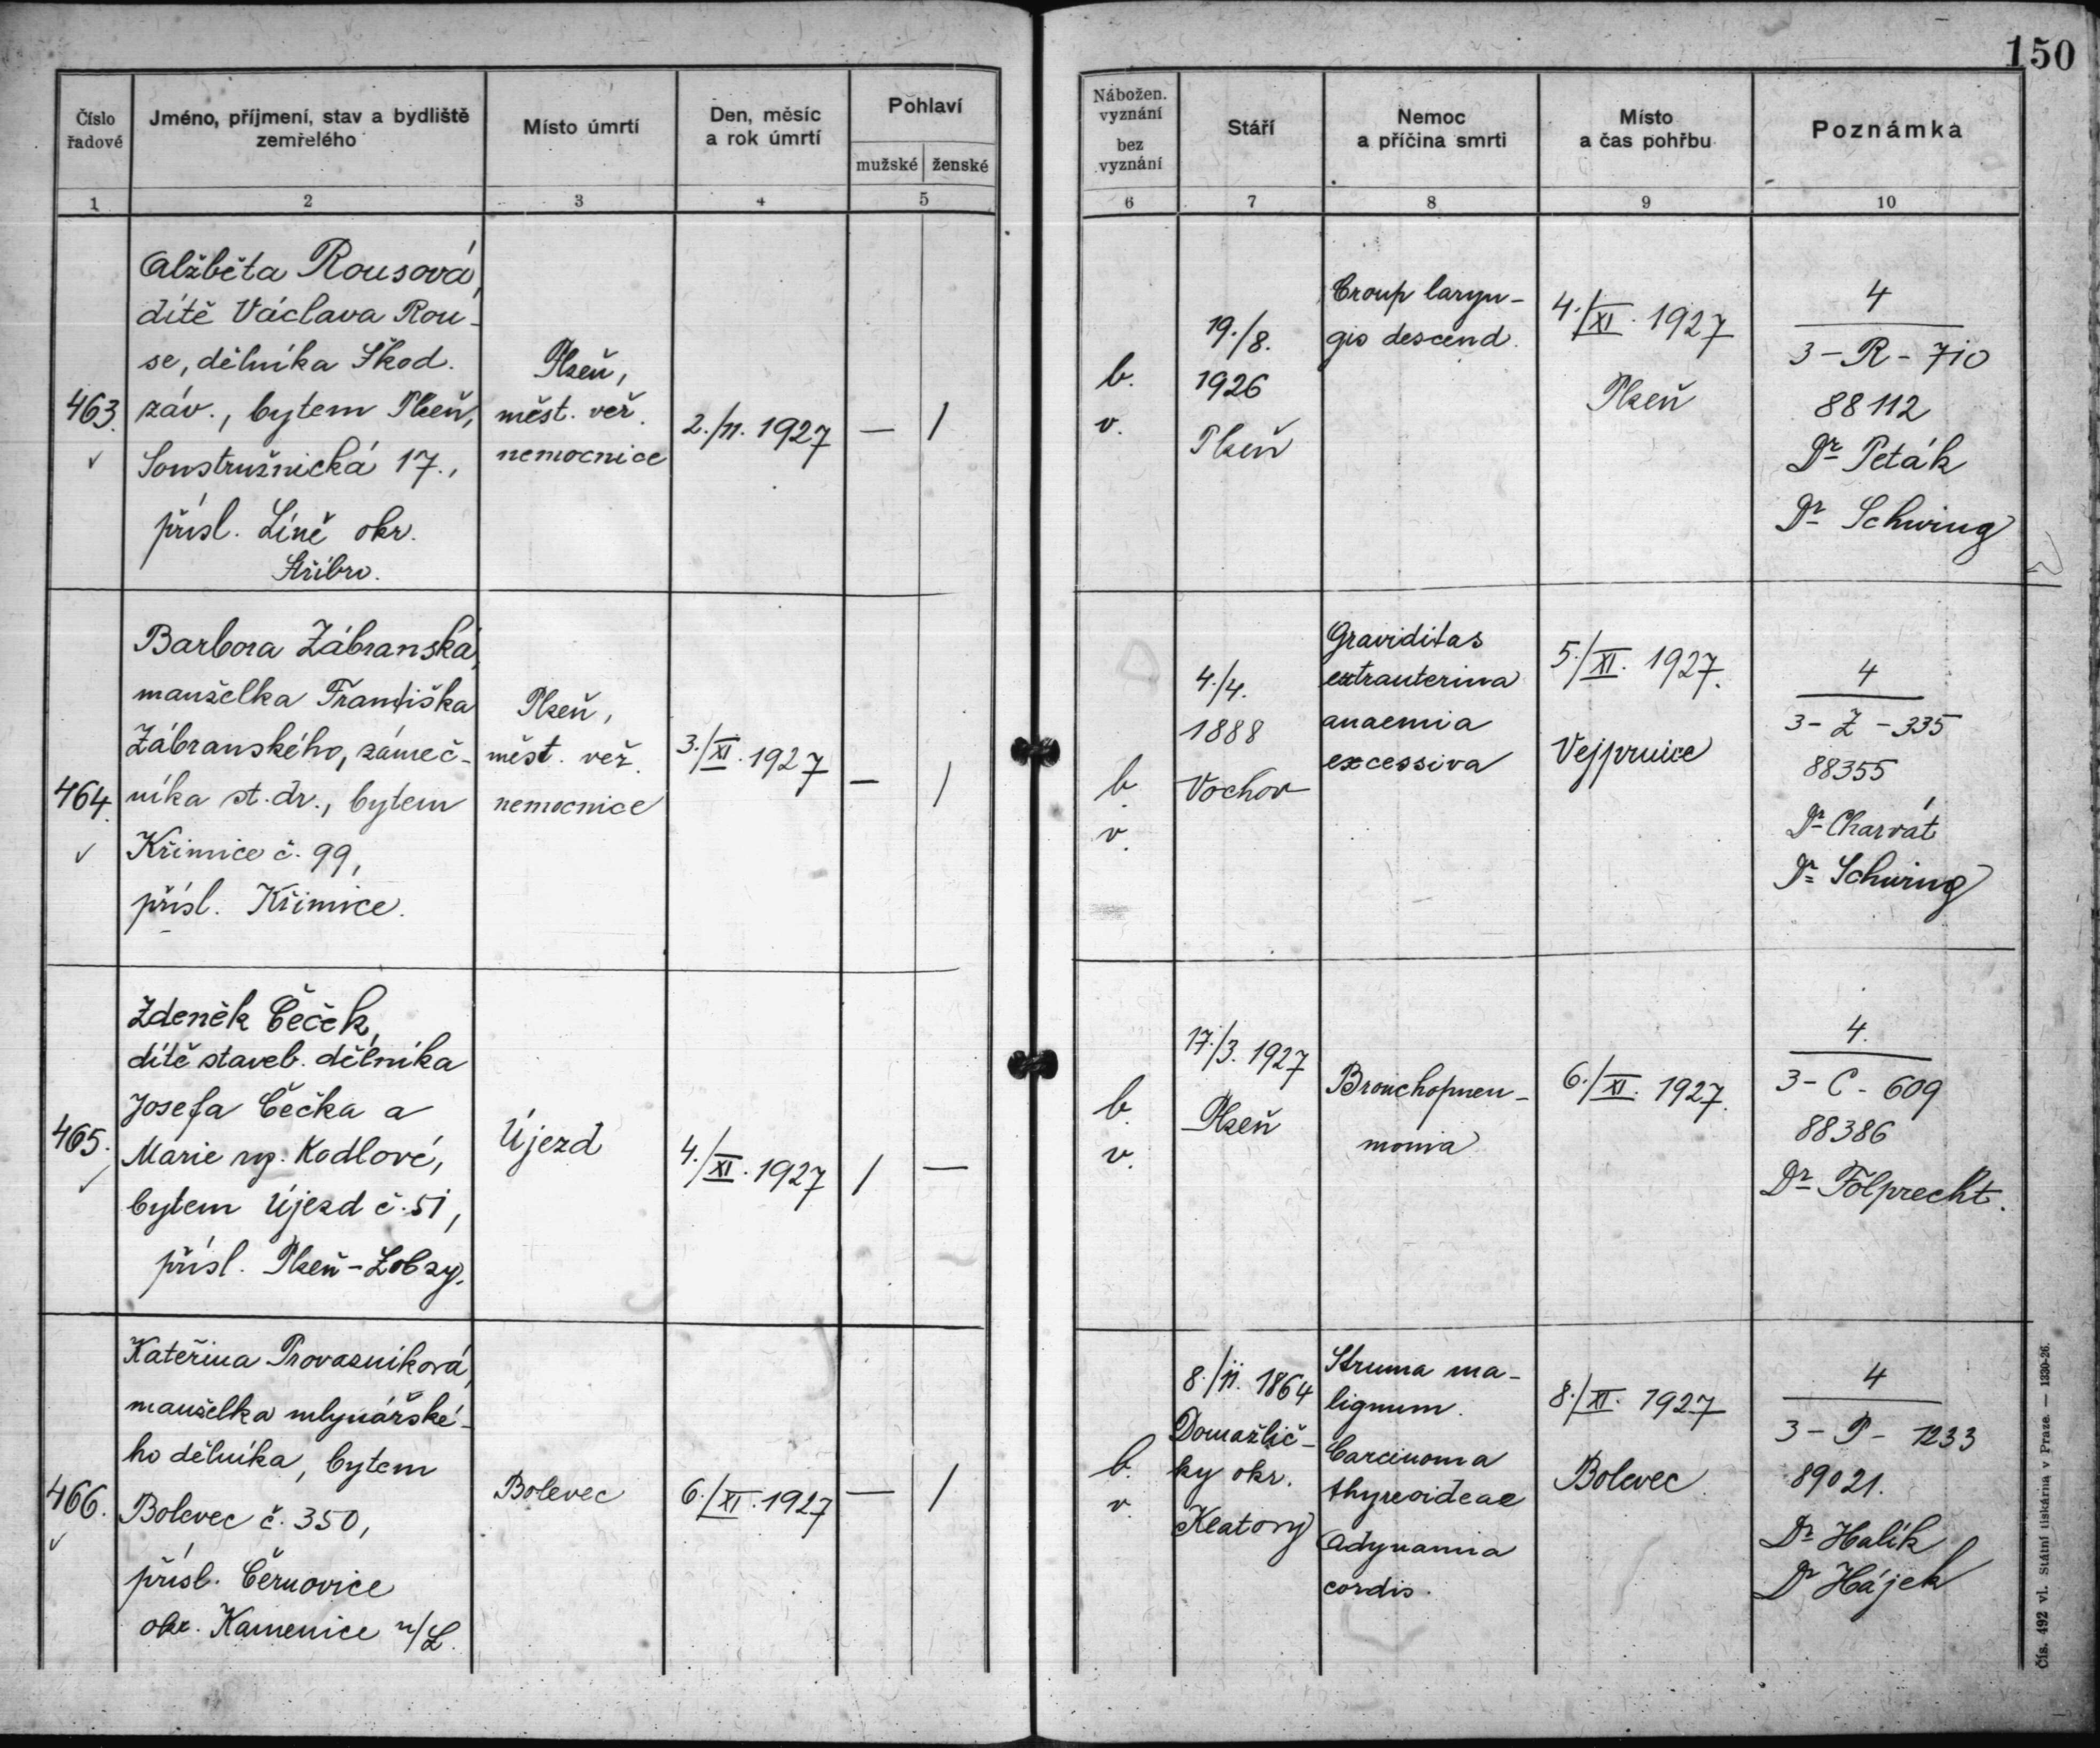 150
Číslo
řadové
Jméno, příjmení, stav a bydliště
zemřelého
Místo úmrtí
Den, měsíc
a rok úmrtí
Pohlaví
mužské ženské
1 2 3 4 5
Nábožen.
vyznání
bez
vyznání
Stáří
Nemoc
a příčina smrti
Místo
a čas pohřbu
Poznámka
6 7 8 9 10
463.
Alžběta Rousová,
dítě Václava Rou-
se, dělníka Škod.
záv., bytem Plzeň,
Soustružnická 17.,
přísl. Líně okr.
Stříbro.
Plzeň,
měst. veř.
nemocnice
2./11. 1927
— /
b.
v.
19./8.
1926
Plzeň
Croup laryn-
gis descend.
4./XI. 1927
Plzeň
4
3 - R - 710
88112
Dr Peták
Dr Schwing
464.
Barbora Zábranská,
manželka Františka
Zábranského, zámeč-
níka st. dr., bytem
Křimice č. 99,
přísl. Křimice.
Plzeň,
měst. veř.
nemocnice
3./XI. 1927
— /
b.
v.
4./4.
1888
Vochov
Graviditas
extrauterina
anaemia
excessiva
5./XI. 1927.
Vejprnice
4
3 - Z - 335
88355
Dr Charvát
Dr Schwing
465.
Zdeněk Čeček,
dítě staveb. dělníka
Josefa Čečka a
Marie roz. Kodlové,
bytem Újezd č. 51,
přísl. Plzeň - Lobzy.
Újezd
4./XI. 1927
/ —
b.
v.
17./3. 1927
Plzeň
Bronchopneu-
monia
6./XI. 1927.
4.
3 - C - 609
88386
Dr Folprecht.
466.
Kateřina Provazníková,
manželka mlynářské-
ho dělníka, bytem
Bolevec č. 350,
přísl. Černovice
okr. Kamenice n/L.
Bolevec
6./XI. 1927
— /
b.
v.
8./11. 1864
Domažlič-
ky okr.
Klatovy
Struma ma-
lignum.
Carcinoma
thyreoideae
Adynamia
cordis.
8./XI. 1927
Bolevec
4
3 - P - 1233
89021.
Dr Halík
Dr Hájek
Čís. 492 vl. Státní tiskárna v Praze. — 1330-26.